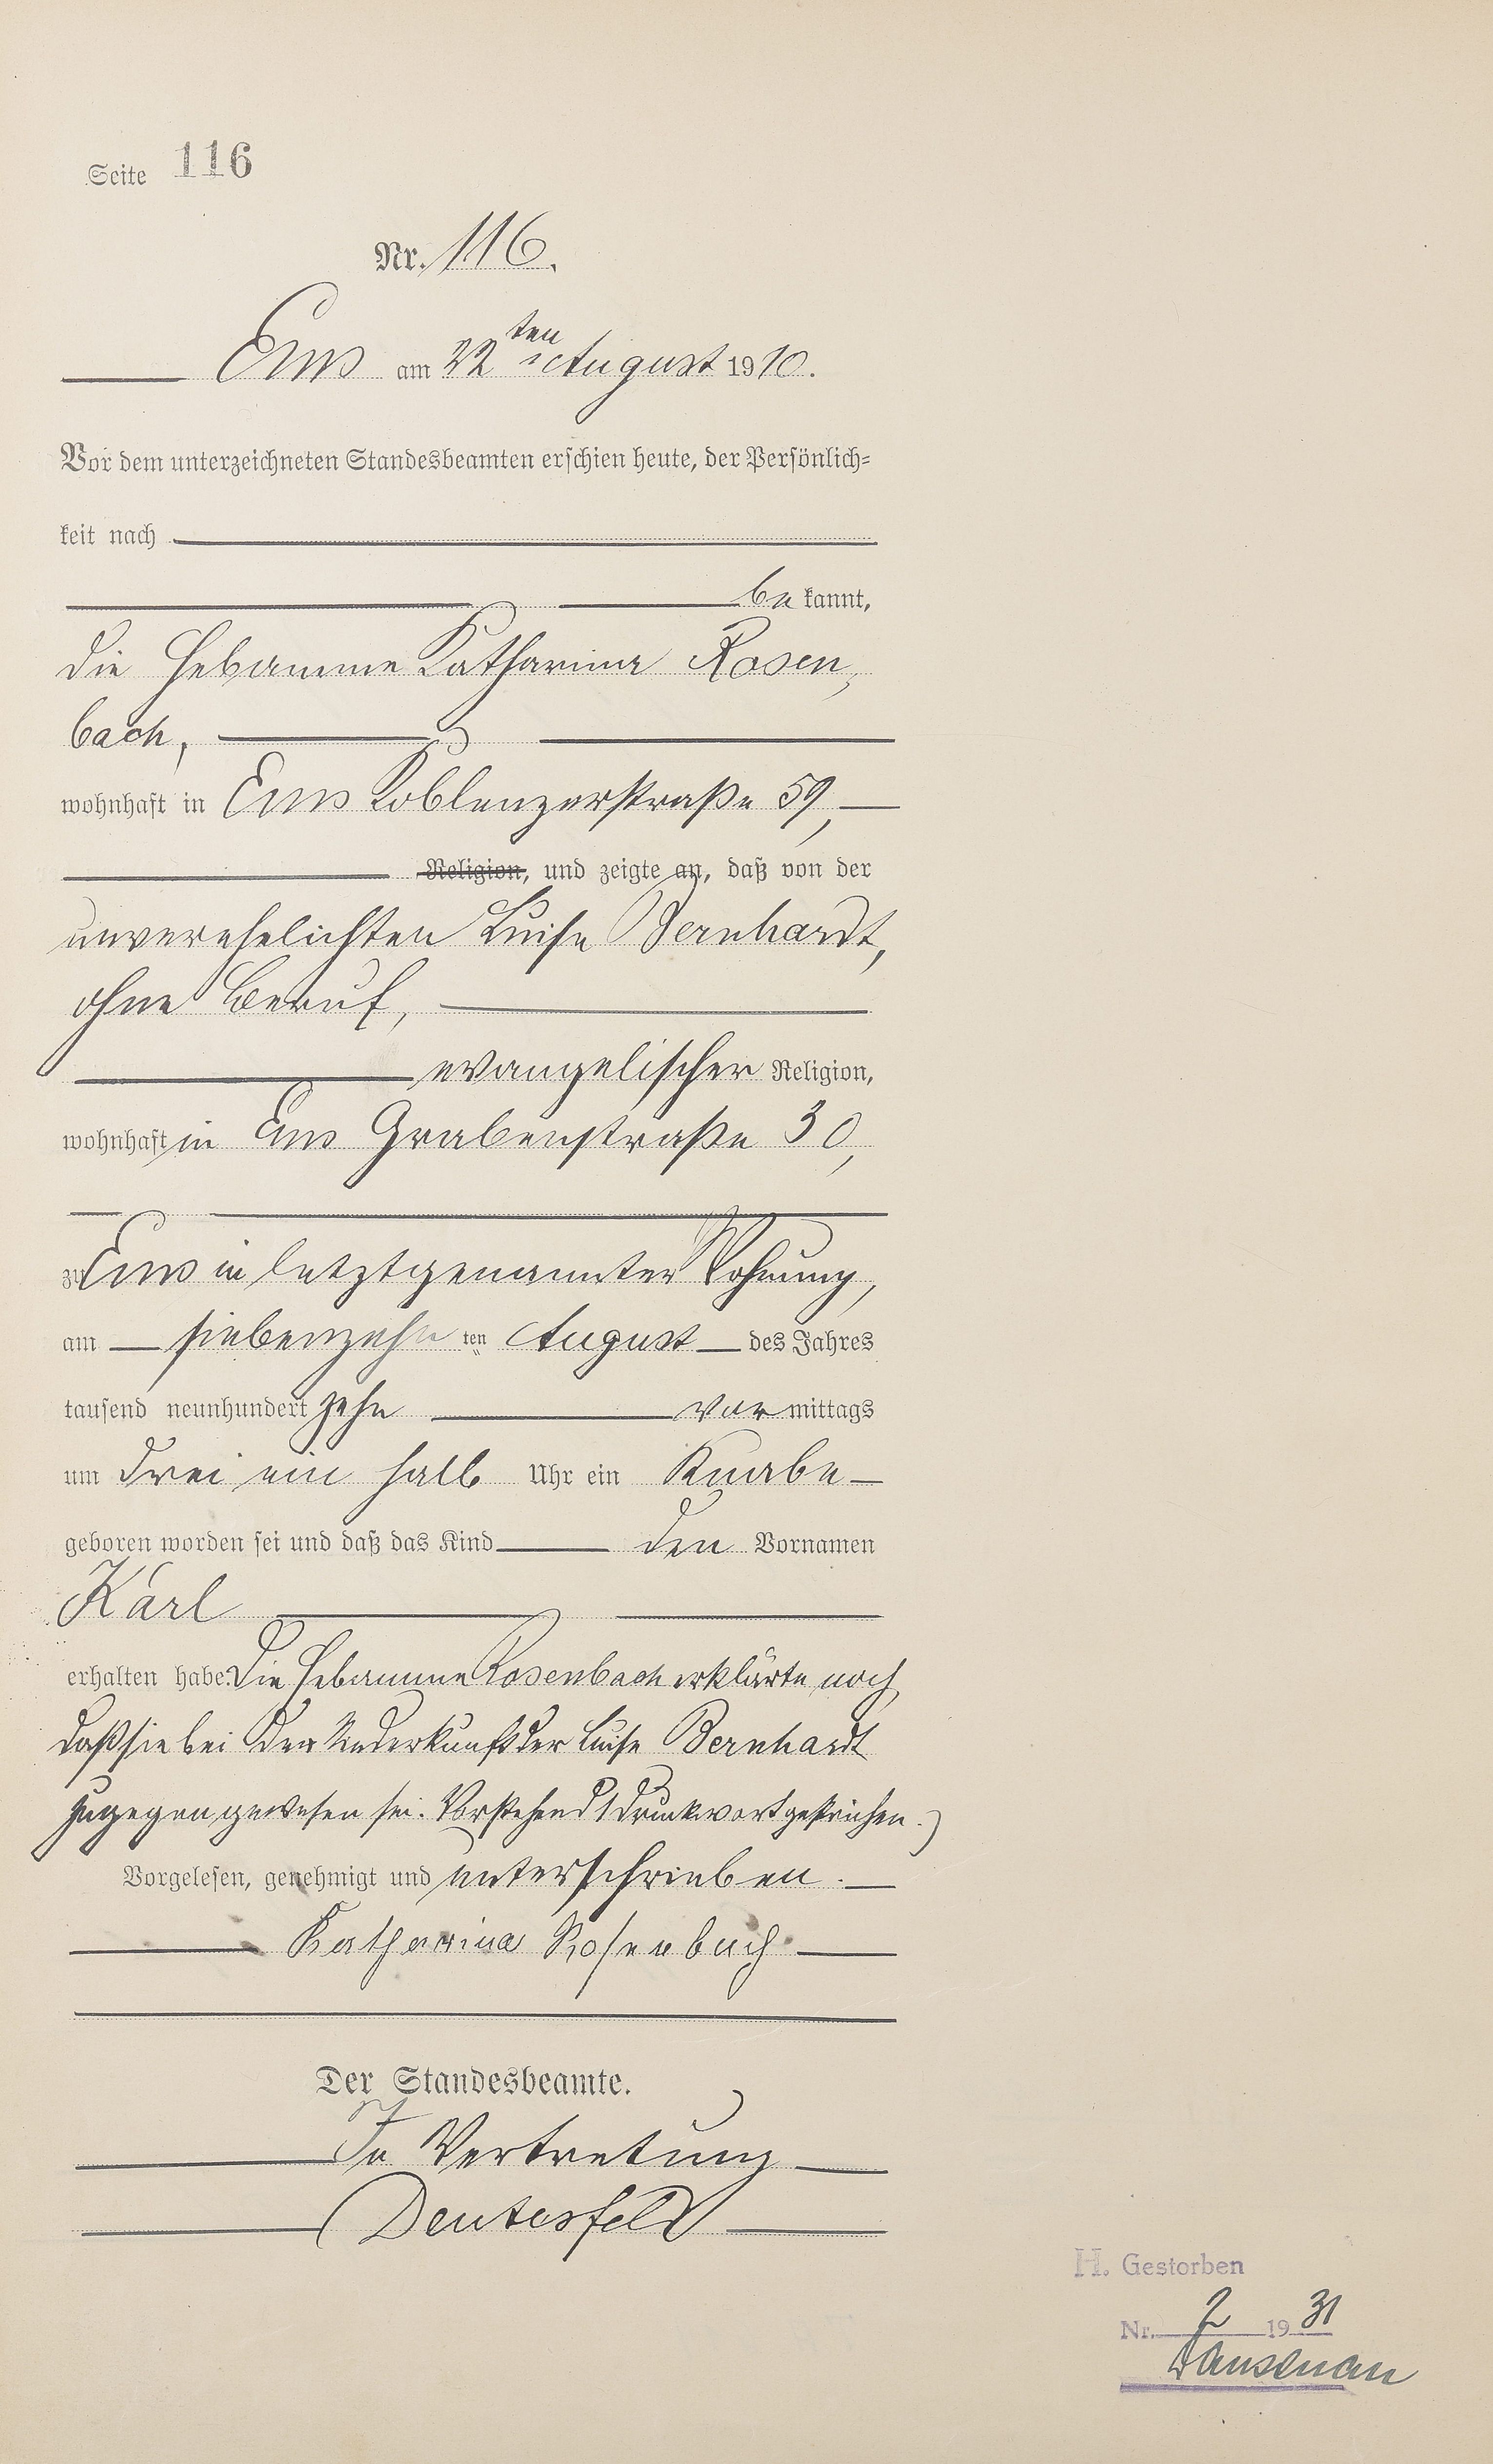 Seite 116
Nr. 116.
Ems am 22ten August 1910.
Vor dem unterzeichneten Standesbeamten erschien heute, der Persönlich=
keit nach
be kannt,
die Hebamme Katharina Rosen,
bach,
wohnhaft in Ems Koblenzerstraße 59,
Religion, und zeigte an, daß von der
unverehelichten Luise Bernhardt,
ohne Beruf,
evangelischer Religion,
wohnhaft in Ems Grabenstraße 30,
zu Ems in letztgenannter Wohnung,
am siebenzehn ten August des Jahres
tausend neunhundert zehn vor mittags
um drei ein halb Uhr ein Knabe
geboren worden sei und daß das Kind den Vornamen
Karl
erhalten habe. Die Hebamme Rosenbach erklärte noch,
daß sie bei der Niederkunft der Luise Bernhardt
zugegen gewesen sei. Vorstehend 1 Druckwort gestrichen.)
Vorgelesen, genehmigt und unterschrieben.
Katharina Rosenbach
Der Standesbeamte.
In Vertretung
Deutesfeld
H. Gestorben
Nr. 2 1931
Dausenau